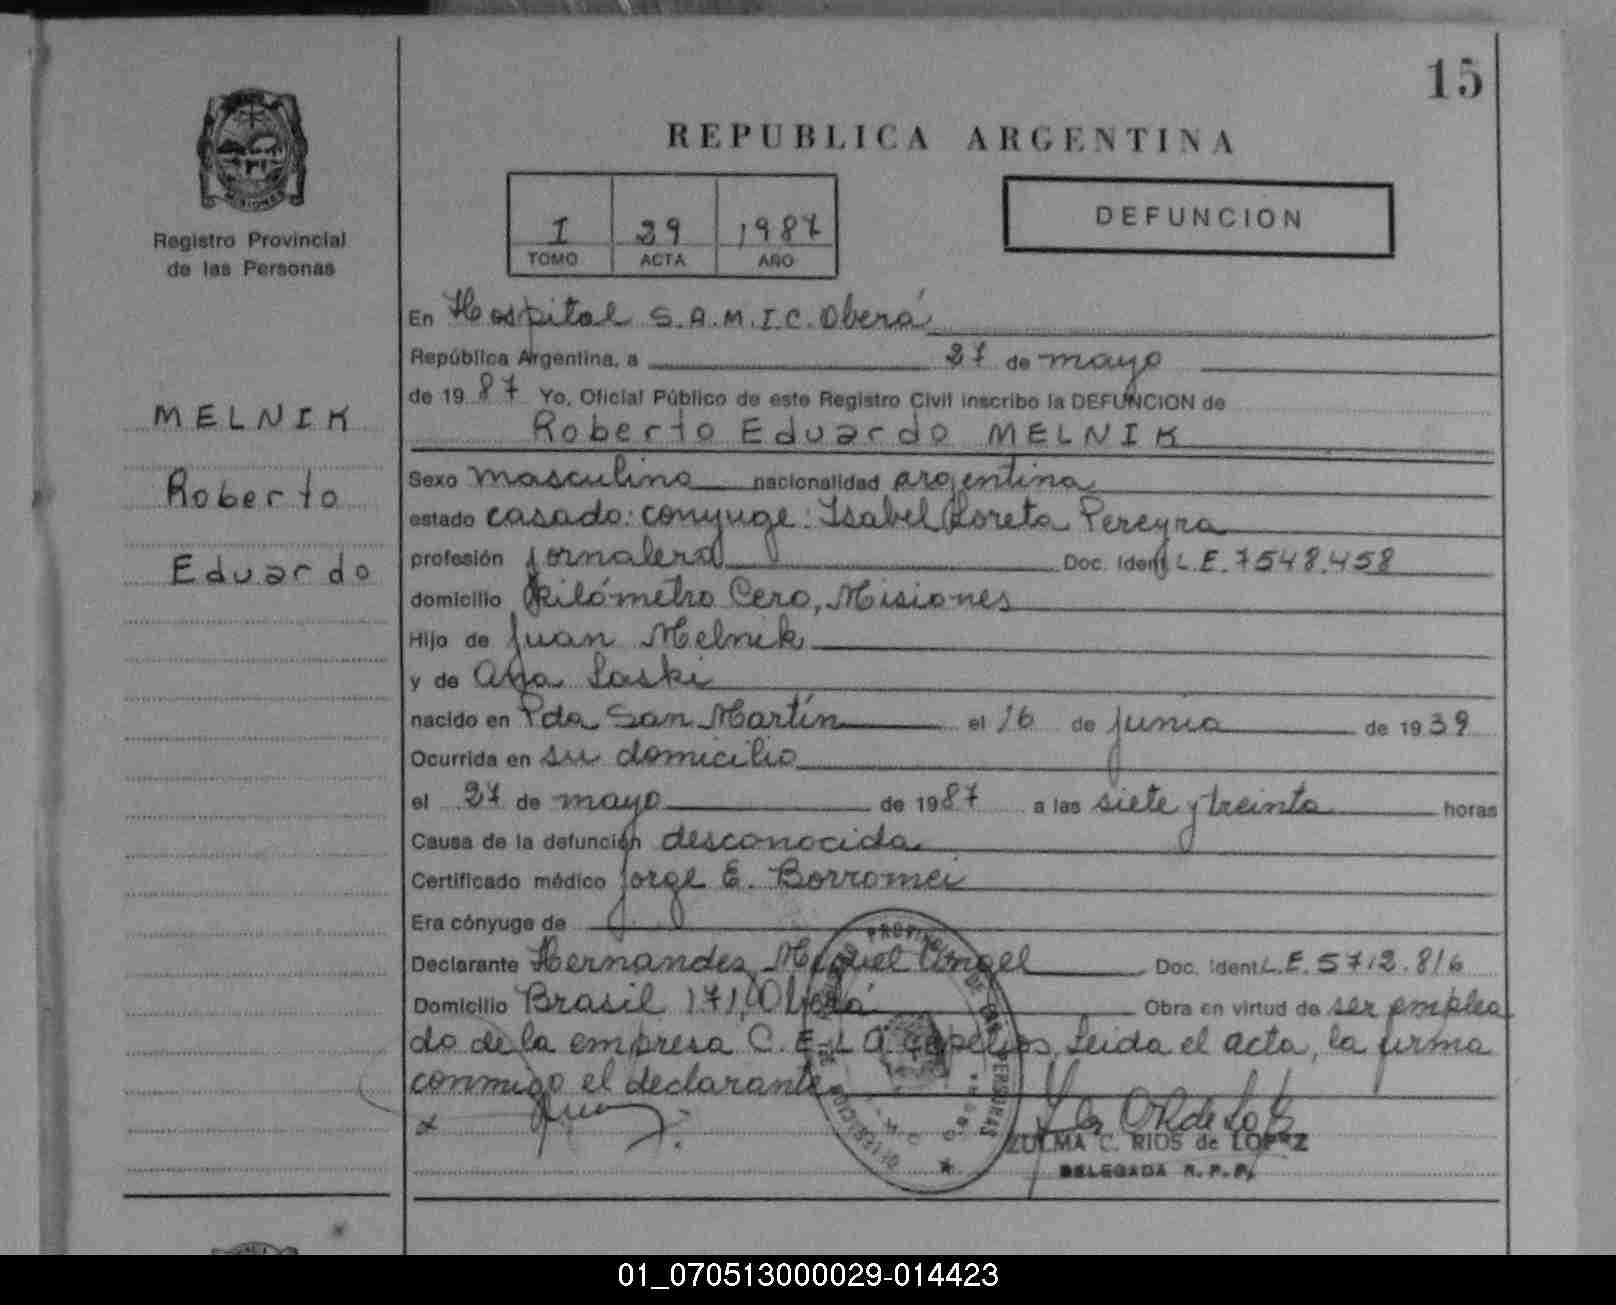 15
REPUBLICA ARGENTINA
MISIONES
Registro Provincial
de las Personas
I 29 1987
TOMO ACTA AÑO
DEFUNCIÓN
MELNIK
Roberto
Eduardo
En Hospital S.A.M.I.C. Oberá
República Argentina, a 27 de mayo
de 1987 Yo, Oficial Público de este Registro Civil inscribo la DEFUNCION de
Roberto Eduardo MELNIK
Sexo masculino nacionalidad argentina
estado casado: conyuge: Isabel Loreta Pereyra
profesión jornalero Doc. Ident. L.E. 7548.458
domicilio Kilómetro Cero, Misiones
Hijo de Juan Melnik
y de Ana Laski
nacido en Pda San Martín el 16 de junio de 1939
Ocurrida en su domicilio
el 27 de mayo de 1987 a las siete y treinta horas
Causa de la defunción desconocida
Certificado médico Jorge E. Borromei
Era cónyuge de
Declarante Hernandez, Miguel Angel Doc. Ident. L.E. 5712.816
Domicilio Brasil 171, Oberá Obra en virtud de ser emplea
do de la empresa C.E.L.A. Leida el acta, la firma
conmigo el declarante
ZULMA C. RIOS de LOPEZ
DELEGADA R.P.P.
01_070513000029-014423